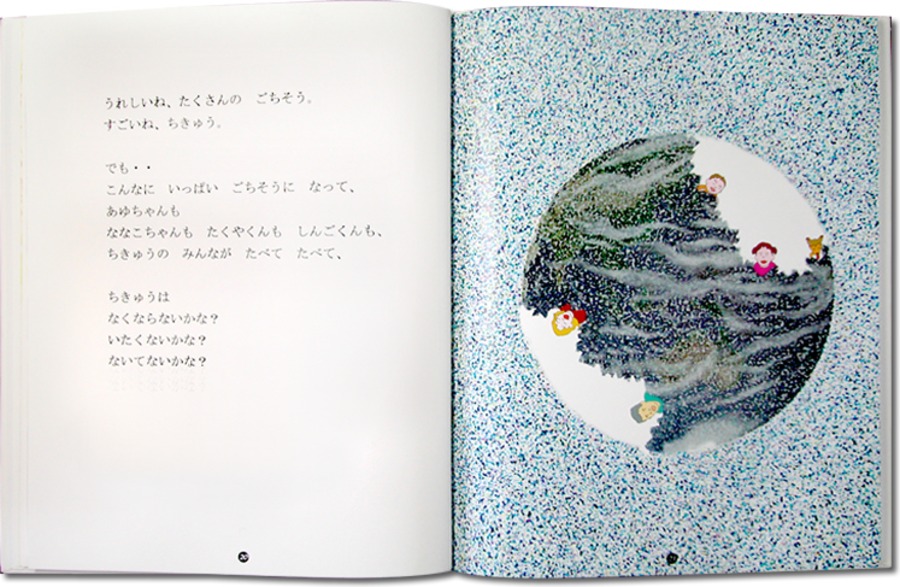 うれしいね、たくさんの　ごちそう。
すごいね、ちきゅう。
でも・・
こんなに　いっぱい　ごちそうに　なって、
あゆちゃんも
ななこちゃんも　たくやくんも　しんごくんも、
ちきゅうの　みんなが　たべて　たべて、
ちきゅうは
なくならないかな？
いたくないかな？
ないてないかな？
20